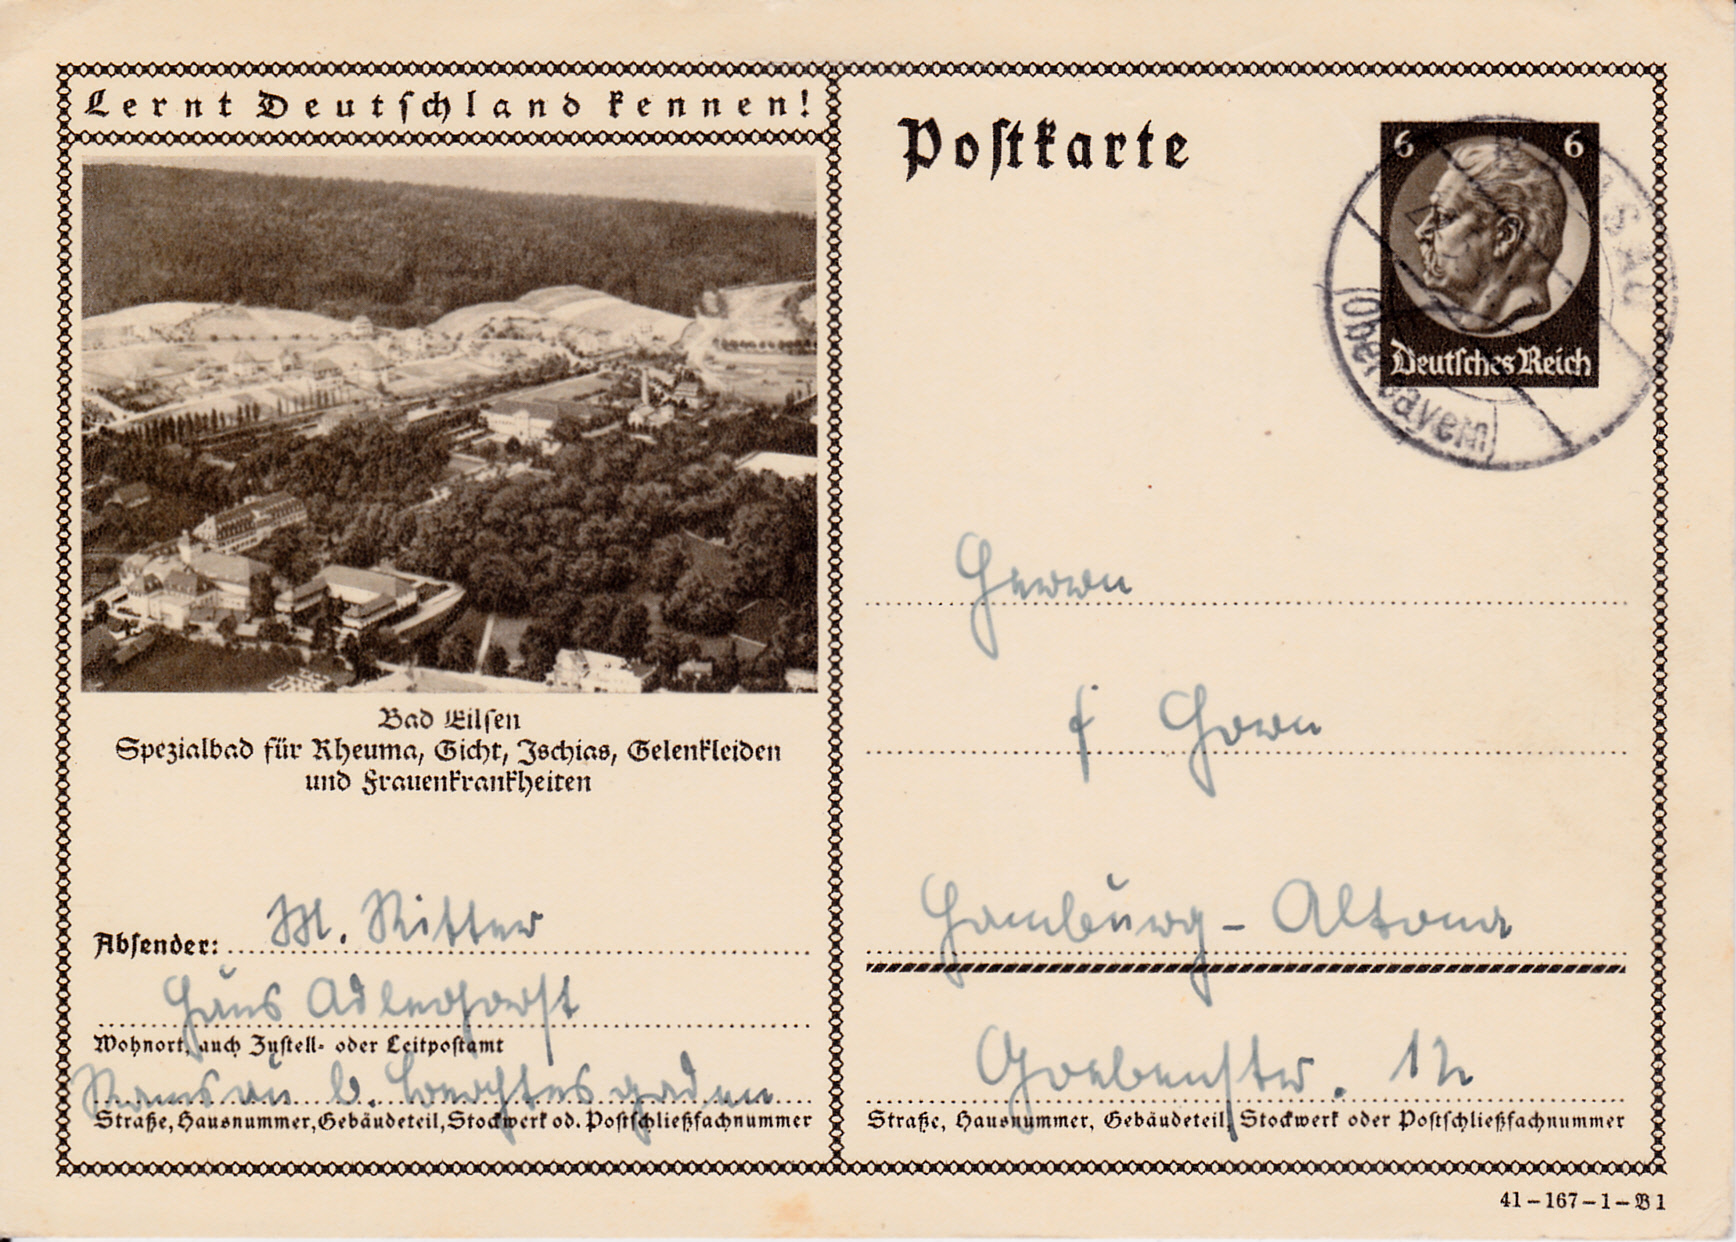 Lernt Deutschland kennen!
Postkarte
6 6
Deutsches Reich
RAMSAU
(Oberbayern)
Bad Eilsen
Spezialbad für Rheuma, Gicht, Ischias, Gelenkleiden
und Frauenkrankheiten
Herrn
Horn
Hamburg - Altona
Goebenstr.
Absender: M. Ritter
Haus Adlerhorst
Wohnort, auch Zustell- oder Leitpostamt
Ramsau b. Berchtesgaden
Straße, Hausnummer, Gebäudeteil, Stockwerk od. Postschließfachnummer
Straße, Hausnummer, Gebäudeteil, Stockwerk oder Postschließfachnummer
41-167-1-B1